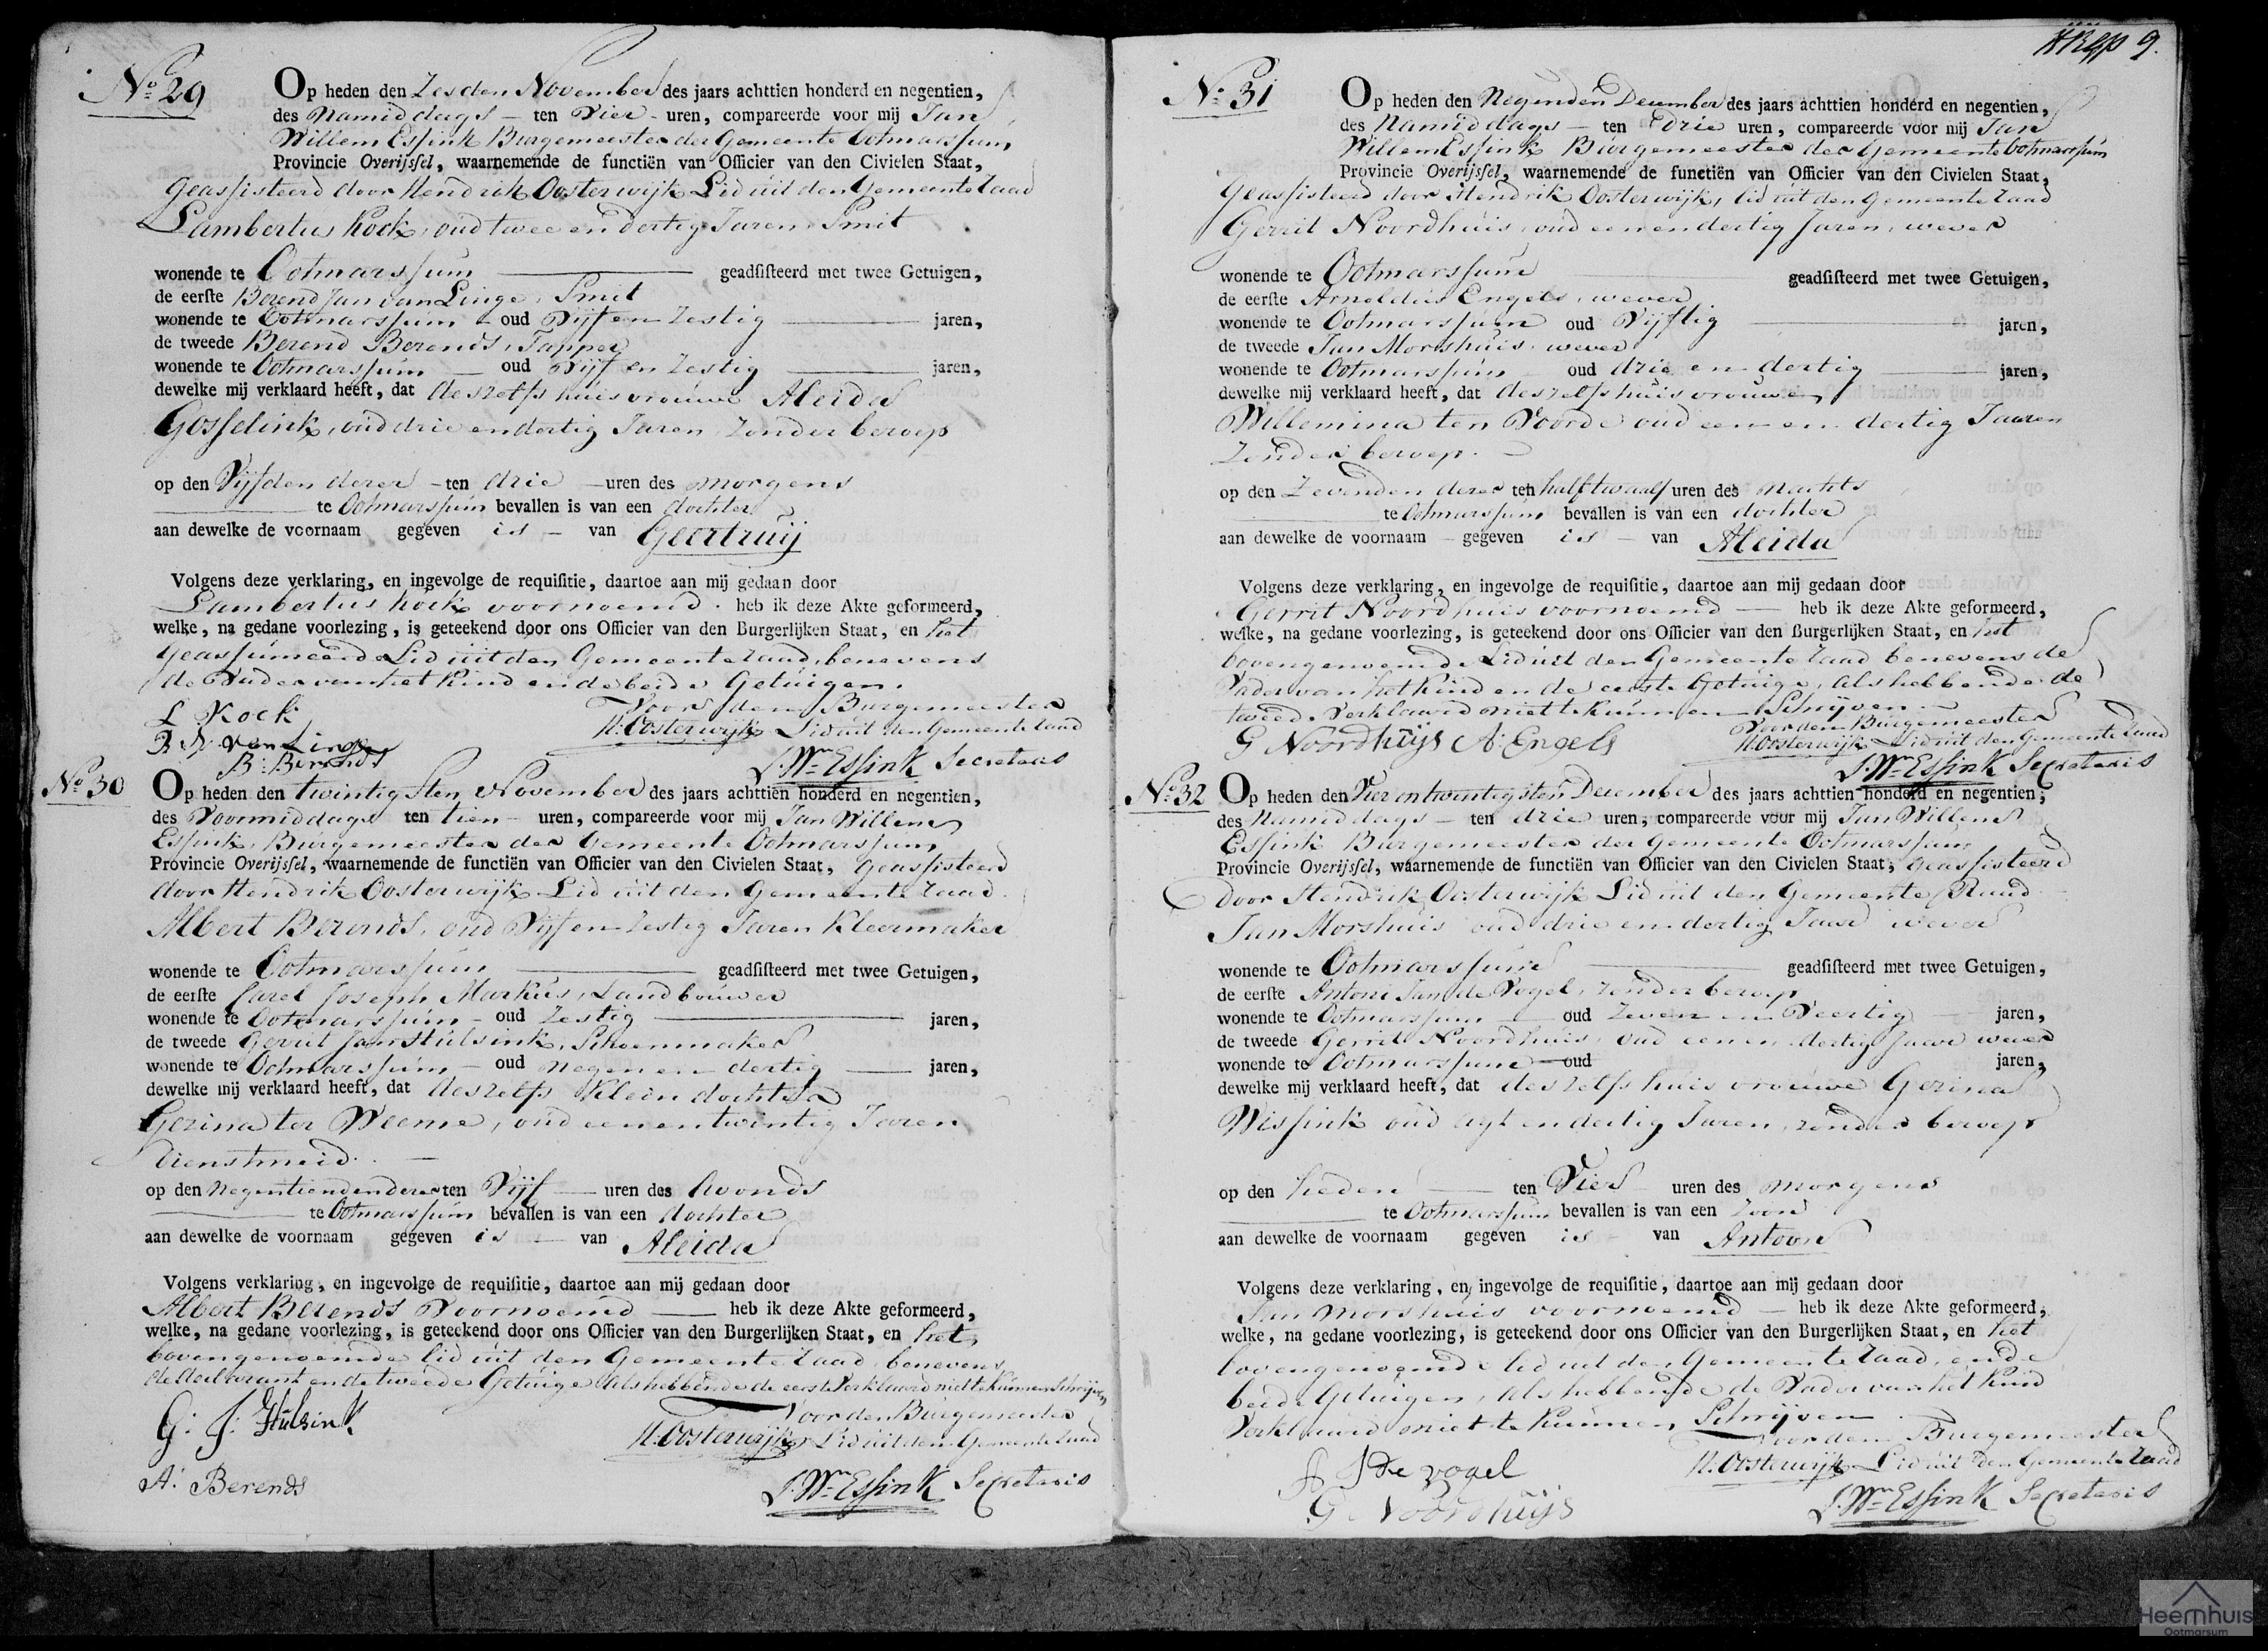 No 29
Op heden den Zesden November des jaars achttien honderd en negentien,
des Namiddags - ten Vier - uren, compareerde voor mij Jan
Willem Essink Burgemeester der Gemeente Ootmarssum
Provincie Overijssel, waarnemende de functiën van Officier van den Civielen Staat,
Geassisteerd door Hendrik Oosterwijk Lid uit den Gemeente Raad
Lambertus Kock, oud twee en dertig Jaren Smit
wonende te Ootmarssum geadsisteerd met twee Getuigen,
de eerste Berend Jan van Linge, Smit
wonende te Ootmarssum - oud Vijf en Zestig jaren,
de tweede Berend Berends, Tapper
wonende te Ootmarssum - oud Vijf en Zestig jaren,
dewelke mij verklaard heeft, dat deszelfs huisvrouwe Aleida
Gosselink, oud drie en dertig Jaren, Zonder beroep
op den Vijfden dezer - ten drie - uren des morgens
te Ootmarssum bevallen is van een dochter
aan dewelke de voornaam gegeven is - van Geertruij
Volgens deze verklaring, en ingevolge de requisitie, daartoe aan mij gedaan door
Lambertus Kock voornoemd. heb ik deze Akte geformeerd,
welke, na gedane voorlezing, is geteekend door ons Officier van den Burgerlijken Staat, en het
Geassumeerde Lid uit den Gemeente Raad, benevens
de Vader van het Kind en de beide Getuigen.
L Kock
Voor den Burgemeester
B J van Linge
H. Oosterwijk Lid uit den Gemeente Raad
B: Berends
J. Wm Essink Secretaris
No 30
Op heden den twintigsten November des jaars achttien honderd en negentien,
des Voormiddags ten tien - uren, compareerde voor mij Jan Willem
Essink, Burgemeester der Gemeente Ootmarssum
Provincie Overijssel, waarnemende de functiën van Officier van den Civielen Staat, geassisteerd
door Hendrik Oosterwijk Lid uit den Gemeente Raad
Albert Berends, oud Vijf en Zestig Jaren Kleermaker
wonende te Ootmarssum geadsisteerd met twee Getuigen,
de eerste Carel Joseph Markus, Landbouwer
wonende te Ootmarssum - oud Zestig jaren,
de tweede Gerrit Jan Hulsink, Schoenmaker
wonende te Ootmarssum - oud negen en dertig jaren,
dewelke mij verklaard heeft, dat deszelfs Kleindochter
Gezina ter Weeme, oud een en twintig Jaren
Dienstmeid.
op den negentienden dezer ten Vijf uren des Avonds
te Ootmarssum bevallen is van een dochter
aan dewelke de voornaam gegeven is van Aleida
Volgens verklaring, en ingevolge de requisitie, daartoe aan mij gedaan door
Albert Berends Voornoemd heb ik deze Akte geformeerd,
welke, na gedane voorlezing, is geteekend door ons Officier van den Burgerlijken Staat, en het
bovengenoemde lid uit den Gemeente Raad, benevens
de declarant en de tweede Getuige als hebbende de eerste Verklaard niet te kunnen Schrijven
G: J: Hulsink
Voor den Burgemeester
H: Oosterwijk Lid uit den Gemeente Raad
A: Berends
J. Wm Essink Secretaris
9.
No 31
Op heden den Negenden December des jaars achttien honderd en negentien,
des Namiddags - ten drie uren, compareerde voor mij Jan
Willem Essink Burgemeester der Gemeente Ootmarssum
Provincie Overijssel, waarnemende de functiën van Officier van den Civielen Staat,
Geassisteerd door Hendrik Oosterwijk, lid uit den Gemeente Raad
Gerrit Noordhuis, oud een en dertig Jaren, wever
wonende te Ootmarssum geadsisteerd met twee Getuigen,
de eerste Arnoldus Engels, wever
wonende te Ootmarssum oud Vijftig jaren,
de tweede Jan Morshuis, wever
wonende te Ootmarssum oud drie en dertig jaren,
dewelke mij verklaard heeft, dat deszelfs huisvrouwe
Willemina ten Voorde oud een en dertig Jaaren
Zonder beroep. -
op den Zevenden dezer ten half twaalf uren des Nachts
te Ootmarssum bevallen is van een dochter
aan dewelke de voornaam - gegeven is - van Aleida
Volgens deze verklaring, en ingevolge de requisitie, daartoe aan mij gedaan door
Gerrit Noordhuis voornoemd heb ik deze Akte geformeerd,
welke, na gedane voorlezing, is geteekend door ons Officier van den Burgerlijken Staat, en het
bovengenoemde Lid uit den Gemeente Raad benevens de
Vader van het Kind en de eerste Getuige, als hebbende de
tweede Verklaard niet te kunnen Schrijven
Voor den Burgemeester
G Noordhuijs A: Engels
H. Oosterwijk Lid uit den Gemeente Raad
J. Wm Essink Secretaris
No 32
Op heden den Vier en twintigsten December des jaars achttien honderd en negentien,
des Namiddags - ten drie uren, compareerde voor mij Jan Willem
Essink Burgemeester der Gemeente Ootmarssum
Provincie Overijssel, waarnemende de functiën van Officier van den Civielen Staat, geassisteerd
door Hendrik Oosterwijk Lid uit den Gemeente Raad
Jan Morshuis oud drie en dertig Jaar wever
wonende te Ootmarssum geadsisteerd met twee Getuigen,
de eerste Antoni Jan de Vogel, zonder beroep
wonende te Ootmarssum oud Zeven en Veertig jaren,
de tweede Gerrit Noordhuis, oud een en dertig Jaar wever
wonende te Ootmarssum oud jaren,
dewelke mij verklaard heeft, dat deszelfs huisvrouwe Gezina
Wissink oud agt en dertig Jaren, zonder beroep
op den heden ten Vier uren des morgens
te Ootmarssum bevallen is van een Zoon
aan dewelke de voornaam gegeven is - van Antoon
Volgens deze verklaring, en ingevolge de requisitie, daartoe aan mij gedaan door
Jan Morshuis voornoemd - heb ik deze Akte geformeerd,
welke, na gedane voorlezing, is geteekend door ons Officier van den Burgerlijken Staat, en het
bovengenoemde lid uit den Gemeente Raad, en de
beide Getuigen, als hebbende de Vader van het Kind
Verklaard niet te kunnen Schrijven
Voor den Burgemeester
A J de vogel
H. Oosterwijk Lid uit den Gemeente Raad
G Noordhuijs
J. Wm Essink Secretaris
Heemhuis
Ootmarsum